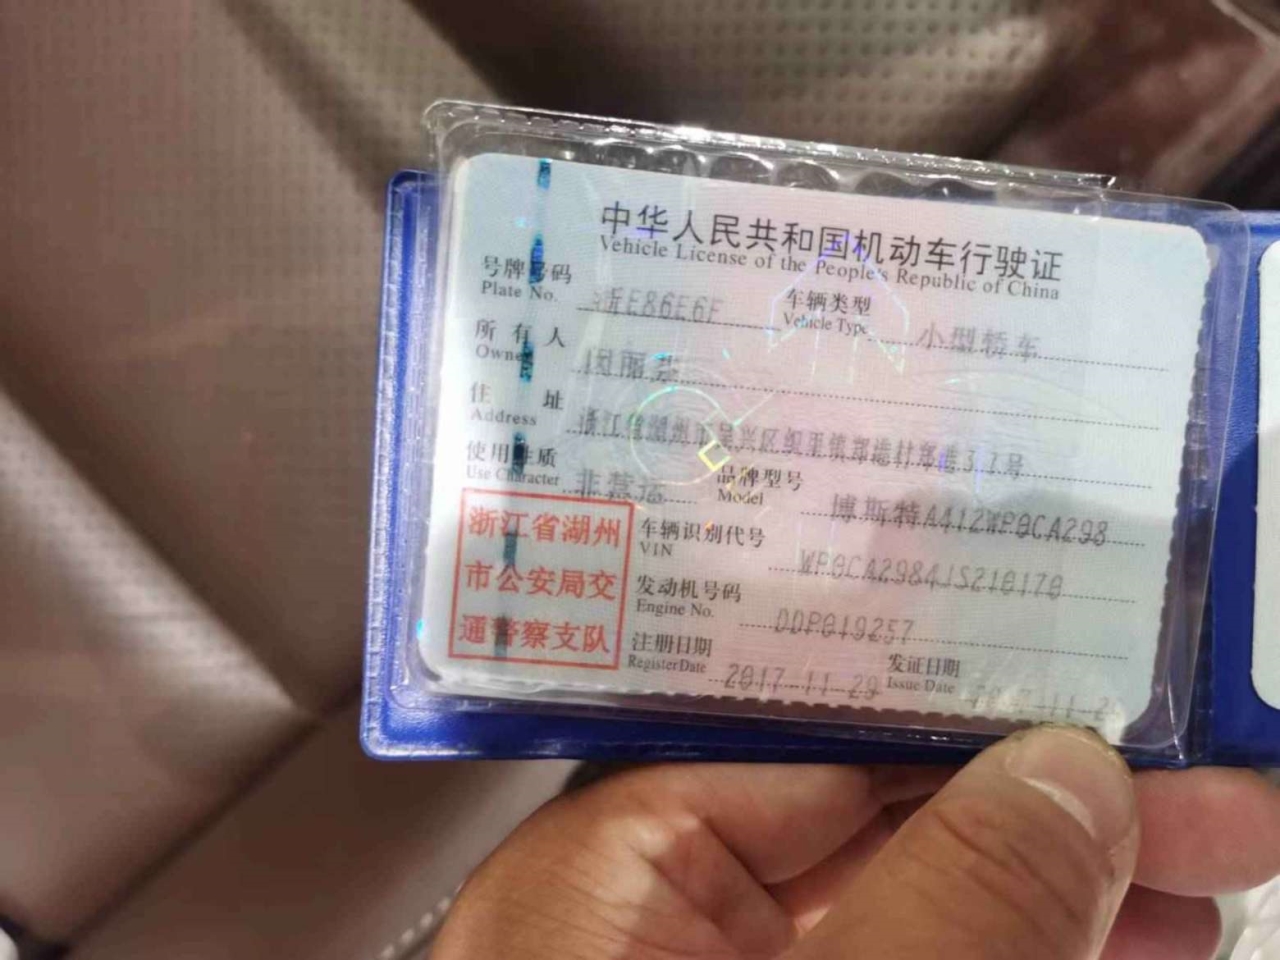 中华人民共和国机动车行驶证
Vehicle License of the People's Republic of China
号牌号码 浙E86E6F 车辆类型 小型轿车
Plate No. Vehicle Type
所有人 闵丽
Owner
住址 浙江省湖州市吴兴区织里镇郑港村郑港37号
Address
使用性质 非营运 品牌型号 博斯特A412WP0CA298
Use Character Model
浙江省湖州
市公安局交
通警察支队
车辆识别代号 WP0CA2984JS210170
VIN
发动机号码 DDP019257
Engine No.
注册日期 2017-11-29 发证日期 2017-11-2
Register Date Issue Date